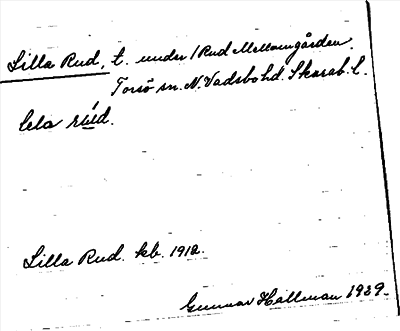 Lilla Rud, t. under 1 Rud Mellomgården.
Torsö sn. N. Vadsbo hd. Skarab. l.
lela rúd.
Lilla Rud. kb. 1912.
Gunnar Hallman 1939.